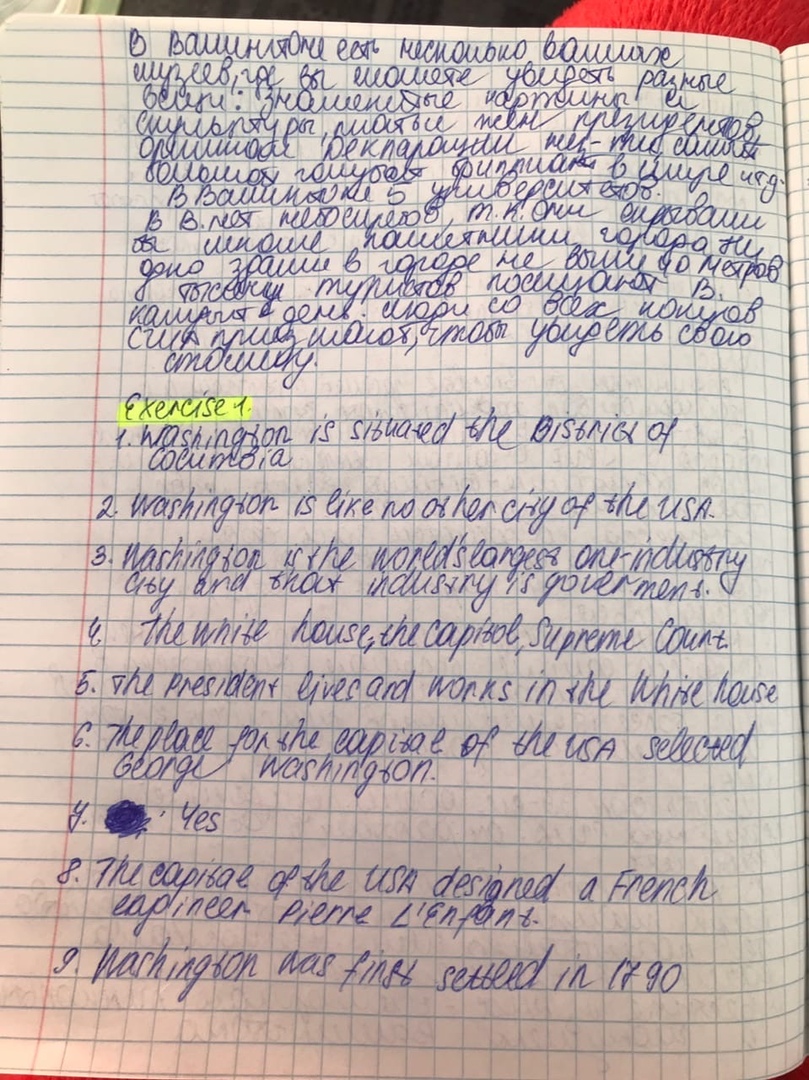 В Вашингтоне есть несколько важных
музеев, где вы можете увидеть разные
вещи: знаменитые картины и
скульптуры, платья жен президентов,
оригинал Декларации нез-ти, самый
большой голубой в мире итд.
В Вашингтоне 5 университетов.
В В. нет небоскребов, т.к. они скрывали
бы памятники города. Ни
одно здание в городе не выше 40 метров
тысячи туристов посещают В.
каждый день. люди со всех
США приезжают, чтобы увидеть свою
столицу.
Exercise 1.
1. Washington is situated the District of
Columbia
2. Washington is like no other city of the USA.
3. Washington is the world's largest one-industry
city and that industry is goverment.
4. The white house, the Capitol, Supreme Court.
5. The President lives and works in the White house
6. The place for the capital of the USA selected
George Washington.
7. Yes
8. The capital of the USA designed a French
engineer Pierre L'Enfant.
9. Washington was first settled in 1790